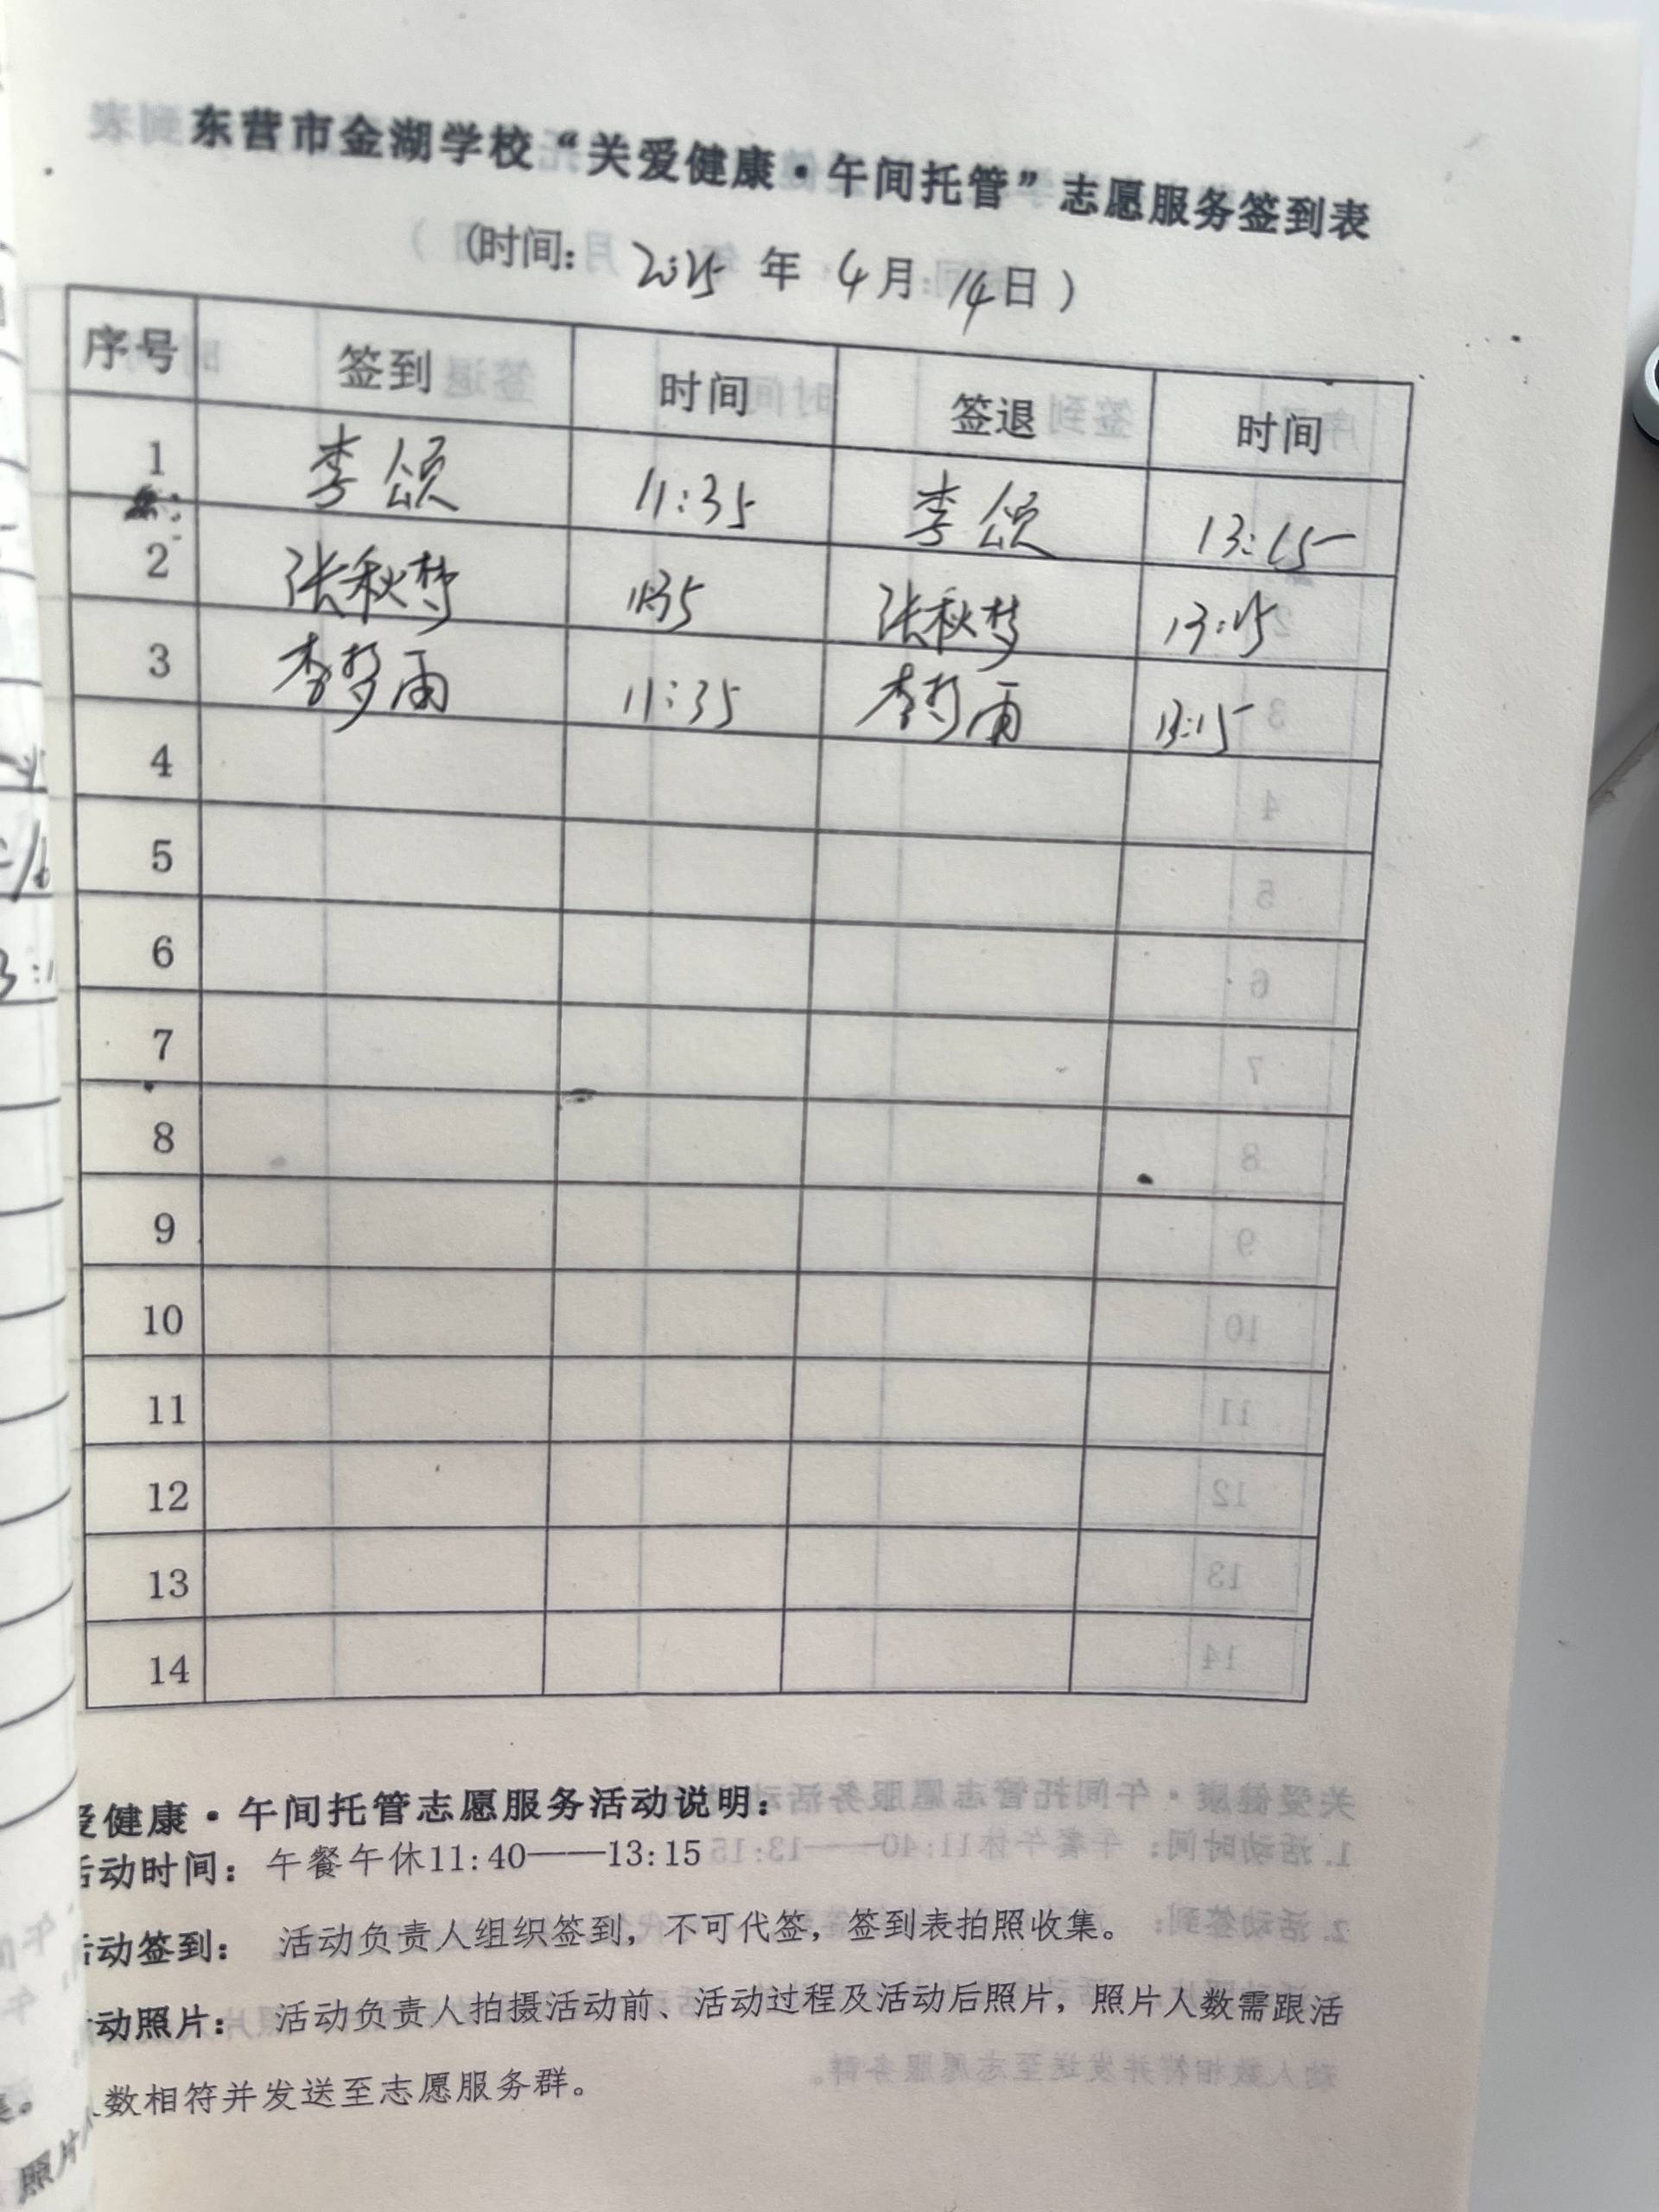 东营市金湖学校“关爱健康·午间托管”志愿服务签到表
(时间: 2025 年 4 月 14 日 )
序号 签到 时间 签退 时间
1 李颂 11:35 李颂 13:15
2 张秋梦 11:35 张秋梦 13:15
3 李梦雨 11:35 李梦雨 13:15
4
5
6
7
8
9
10
11
12
13
14
爱健康·午间托管志愿服务活动说明:
活动时间: 午餐午休11:40——13:15
活动签到: 活动负责人组织签到，不可代签，签到表拍照收集。
活动照片: 活动负责人拍摄活动前、活动过程及活动后照片，照片人数需跟活
人数相符并发送至志愿服务群。
照片